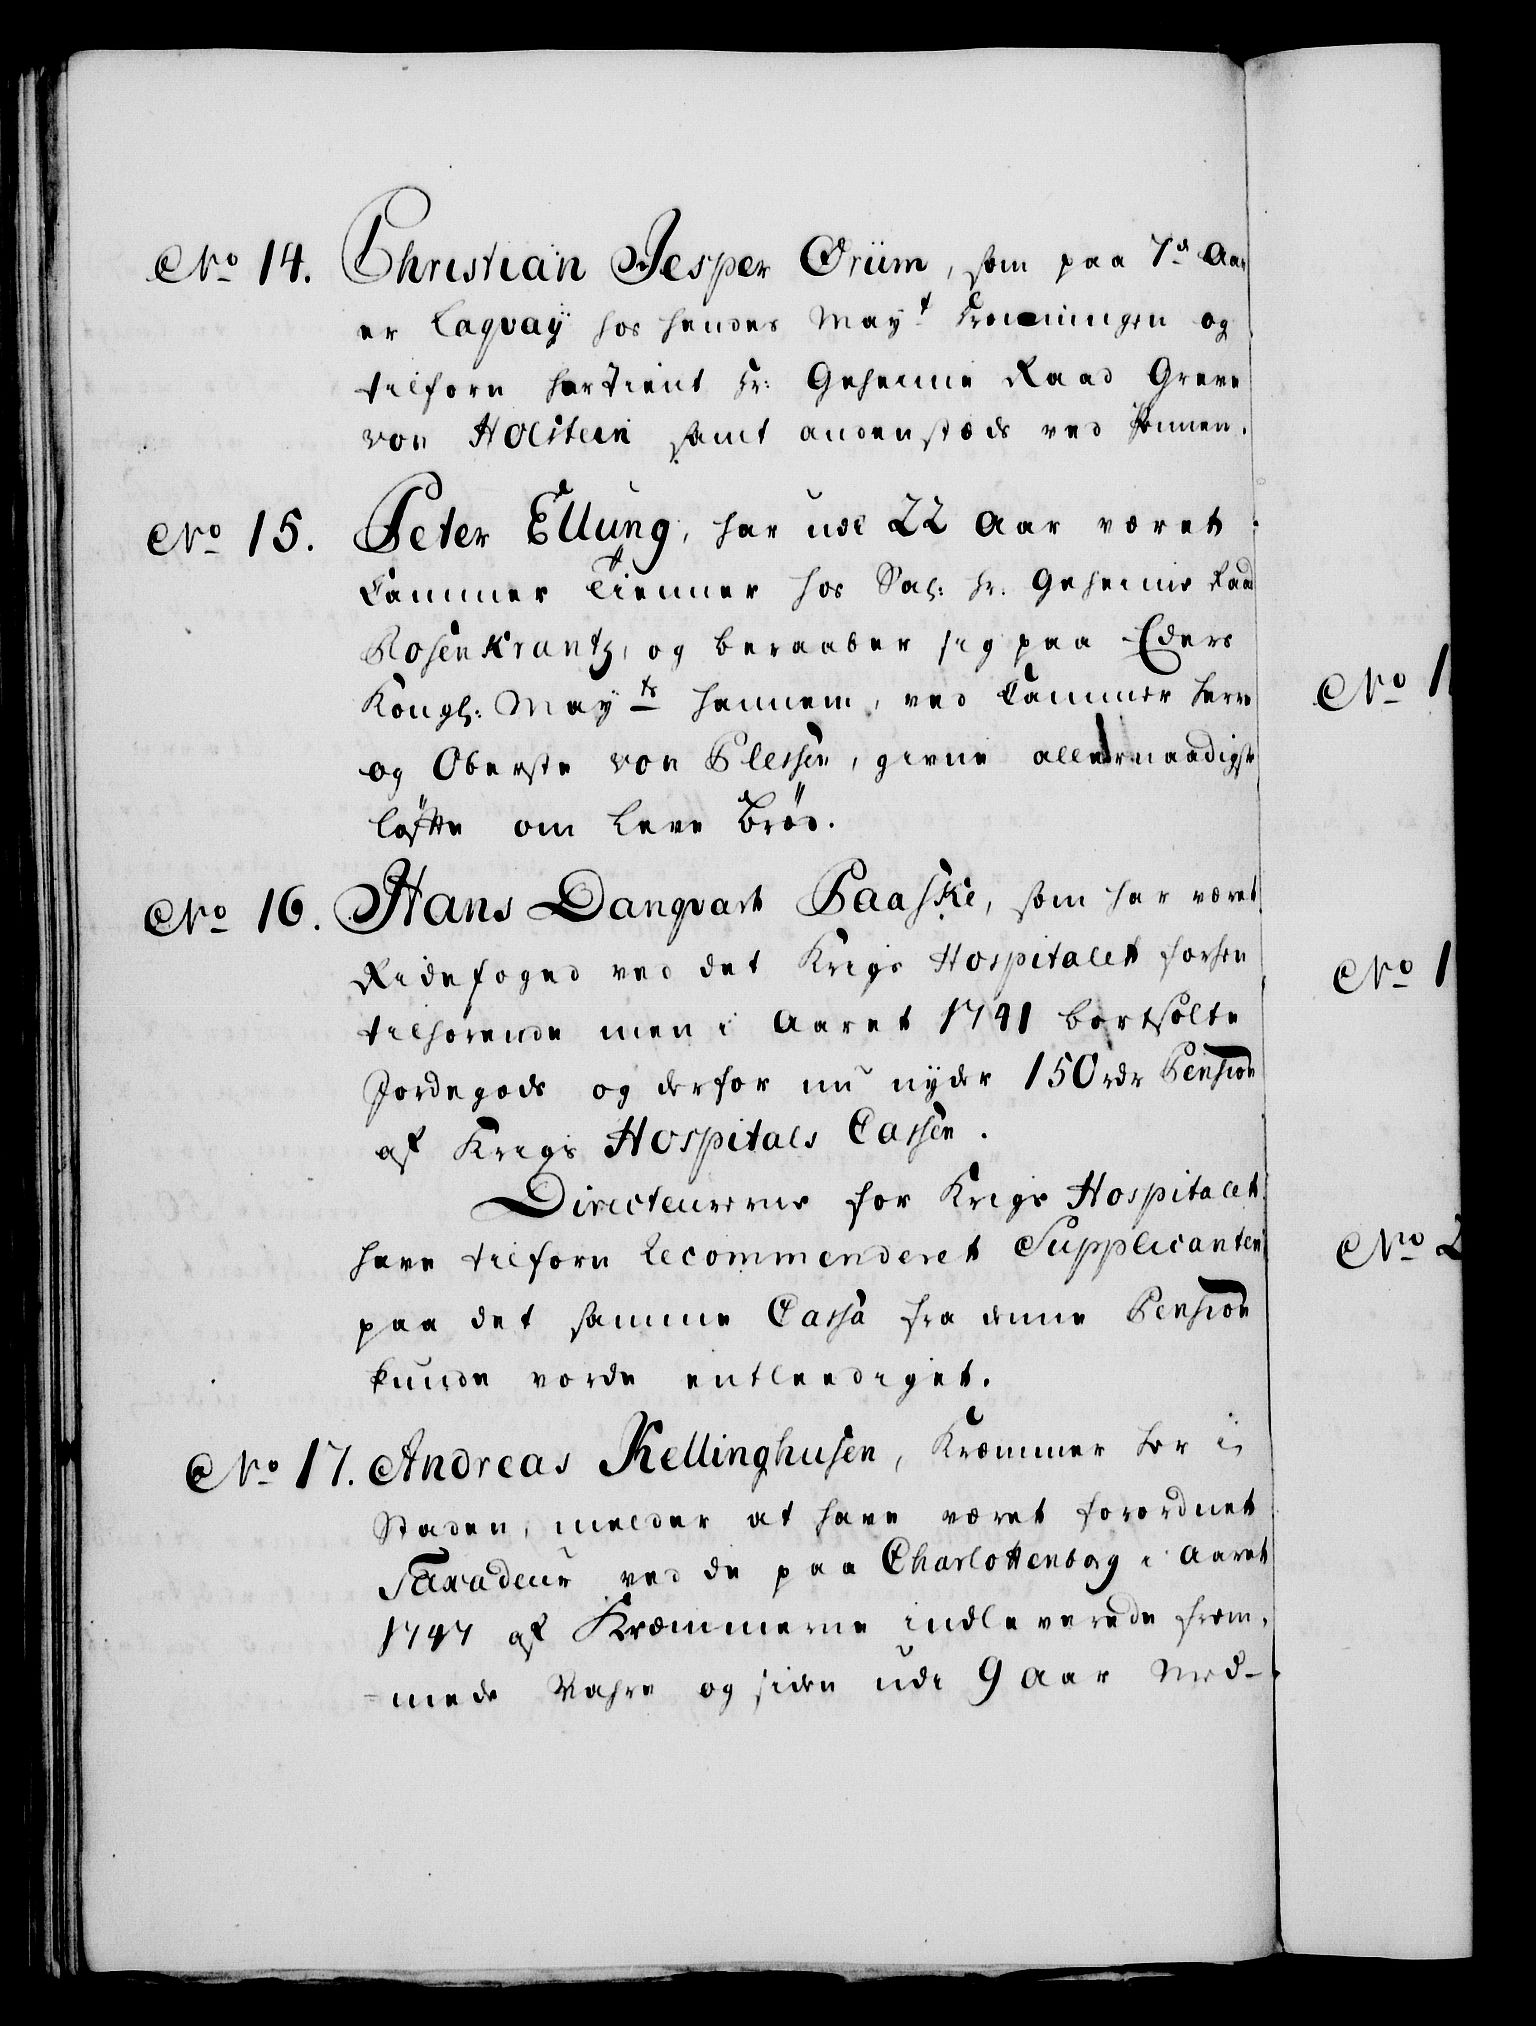 No 14. Christian Jesper Örüm, som paa 7de Aar
er Laqvaÿ hos hendes Mayt Dronningen og
tilforn har tient Hr: Geheime Raad Greve
von Holstein samt andenstæds ved Pennen.
No 15. Peter Ellung, har udi 22 Aar været
Cammer Tienner hos Sal: Hr: Geheime Raad
Rosenkrantz, og beraaber sig paa Eders
Kongl: Mayts hannem, ved Cammer Herre
og Oberste von Plessen, givne allernaadigste
löfte om Leve Bröd.
No 16. Hans Danqvart Paaske, som har været
Ridefoged ved det Krigs Hospitalet forhen
tilhörende men i Aaret 1741 bortsolte
Jordegods og derfor nu nÿder 150 rdr Pension
af Krigs Hospitals Cassen.
Directeurerne for Krigs Hospitalet
have tilforn Recommenderet Supplicanten
paa det samme Cassa fra denne Pension
kunde vorde entleediget.
No 17. Andreas Kellinghusen, Kræmmer her i
Staden, melder at have været forordnet
Taxadeur ved de paa Charlottenborg i Aaret
1747 af Kræmmerne indleverede frem-
mede Vahre og siden udi 9 Aar Med-
No 1
No 1
No 2